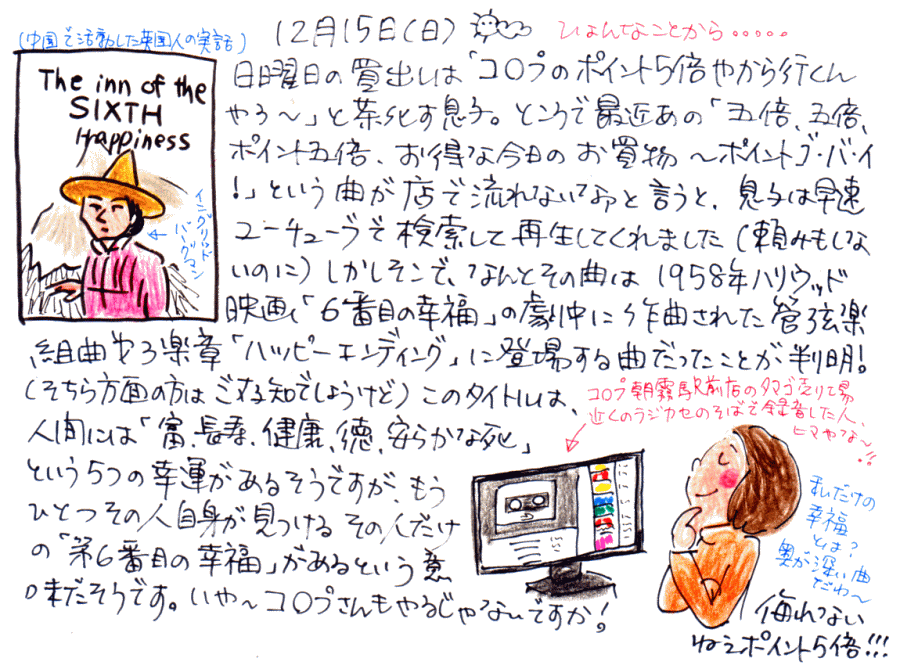 12月15日(日)
ひょんなことから.....
(中国で活動した英国人の実話)
The inn of the
SIXTH
Happiness
イングリッド
バーグマン
日曜日の買出しは「コ〇プのポイント5倍やから行くん
やろ〜」と茶化す息子。ところで最近あの「五倍、五倍、
ポイント五倍、お得な今日のお買物〜ポイントゴ・バ・イ
!」という曲が店で流れないなぁと言うと、息子は早速
ユーチューブで検索して再生してくれました(頼みもしな
いのに)しかしそこで、なんとその曲は1958年ハリウッド
映画「6番目の幸福」の劇中に作曲された管弦楽
組曲第3楽章「ハッピーエンディング」に登場する曲だったことが判明!
(そちら方面の方はご存知でしょうけど)このタイトルは、
人間には「富、長寿、健康、徳、安らかな死」
という5つの幸運があるそうですが、もう
ひとつその人自身が見つけるその人だけ
の「第6番目の幸福」があるという意
味だそうです。いや〜コ〇プさんもやるじゃな〜いですか!
コ〇プ朝霧駅前店のタマゴ売り場
近くのラジカセのそばで録音した人、
ヒマやな〜!!
私だけの
幸福
とは?
奥が深い曲
だわ〜
侮れない
ねぇポイント5倍!!!